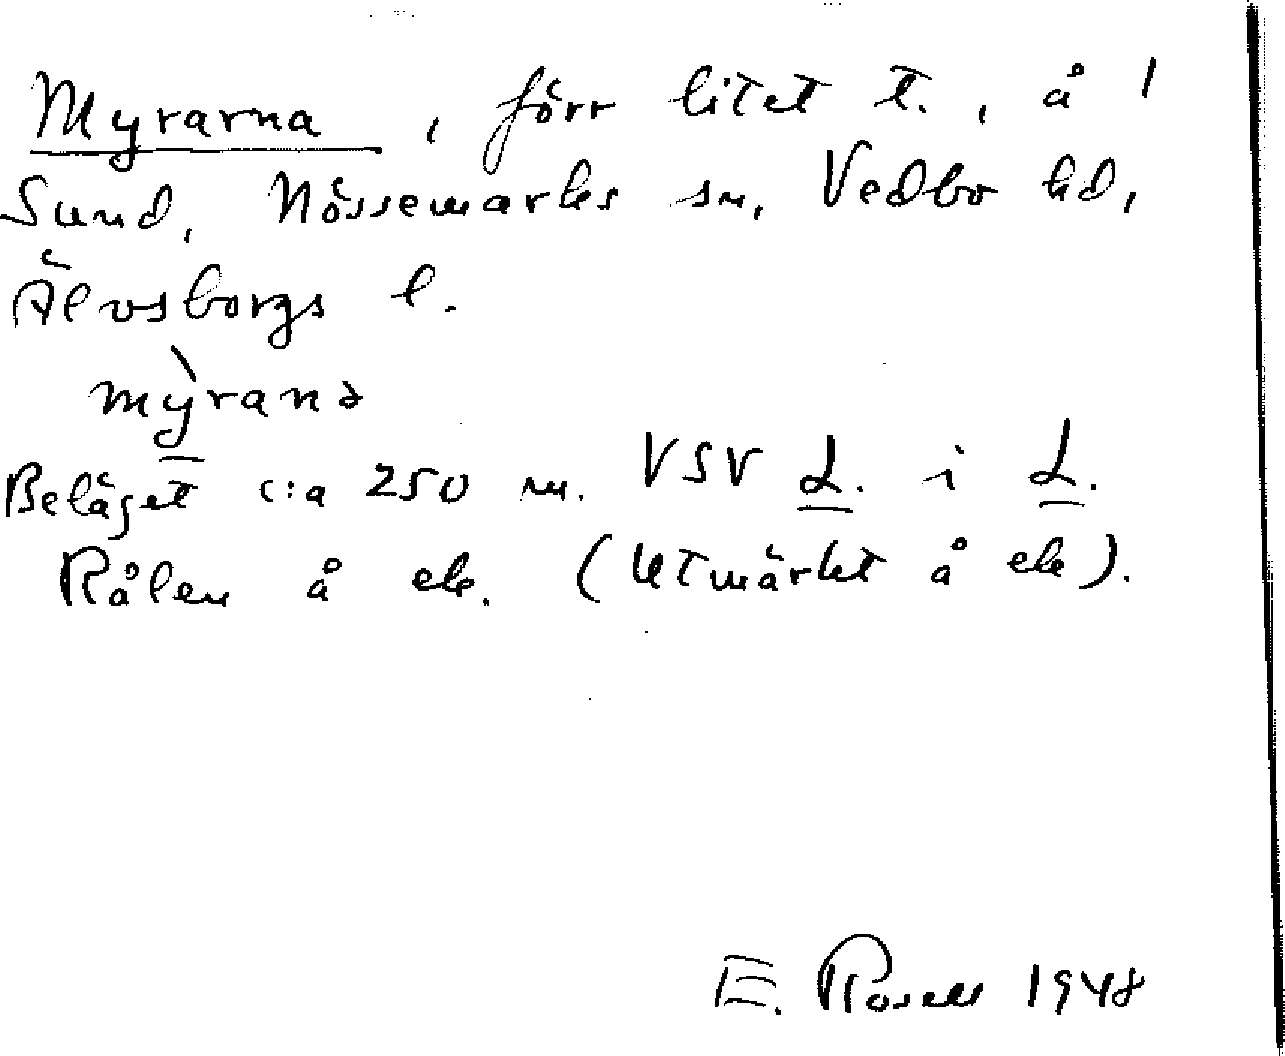 Myrarna, förr litet t., å 1
Sund, Nössemarks sn, Vedbo hd,
Älvsborgs l.
mỳranə
Beläget c:a 250 m. VSV L. i L.
Rålen å ek. (Utmärkt å ek).
E. Rosell 1948